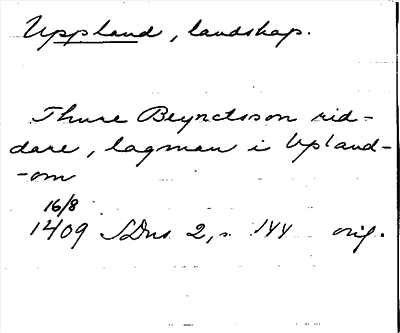 Uppland, landskap.
Thure Beynctsson rid-
dare, lagman i Upland-
-om
16/8
1409 SDns 2, s. 144 orig.